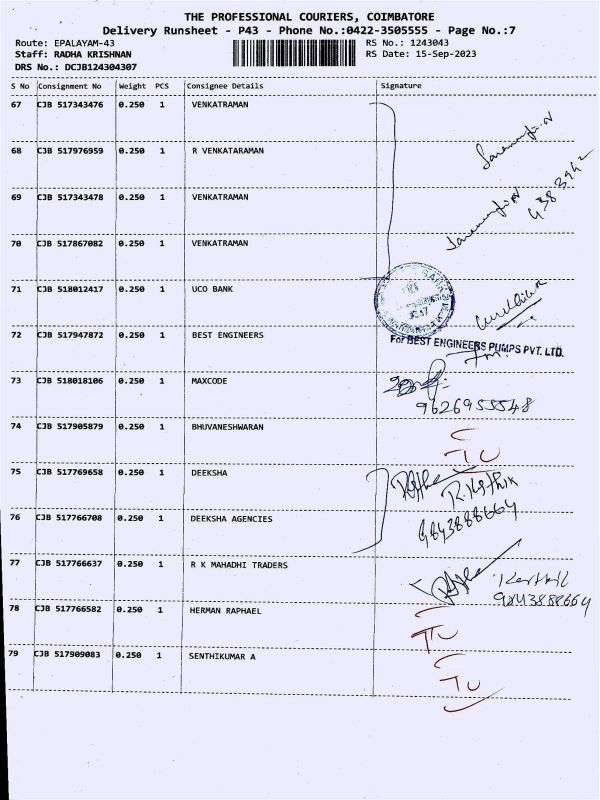 THE PROFESSIONAL COURIERS, COIMBATORE
Delivery Runsheet - P43 - Phone No.:0422-3505555 - Page No.:7
Route: EPALAYAM-43 RS No.: 1243043
Staff: RADHA KRISHNAN RS Date: 15-Sep-2023
DRS No.: DCJB124304307
S No Consignment No Weight PCS Consignee Details Signature
67 CJB 517343476 0.250 1 VENKATRAMAN
68 CJB 517976959 0.250 1 R VENKATARAMAN
69 CJB 517343478 0.250 1 VENKATRAMAN
70 CJB 517867082 0.250 1 VENKATRAMAN
71 CJB 518012417 0.250 1 UCO BANK
72 CJB 517947872 0.250 1 BEST ENGINEERS
For BEST ENGINEERS PUMPS PVT. LTD.
73 CJB 518018106 0.250 1 MAXCODE
9626955548
74 CJB 517905879 0.250 1 BHUVANESHWARAN
TU
75 CJB 517769658 0.250 1 DEEKSHA
R.Karthik
76 CJB 517766708 0.250 1 DEEKSHA AGENCIES
9843888664
77 CJB 517766637 0.250 1 R K MAHADHI TRADERS
Karthik
9843888664
78 CJB 517766582 0.250 1 HERMAN RAPHAEL
TU
79 CJB 517909083 0.250 1 SENTHIKUMAR A
TU